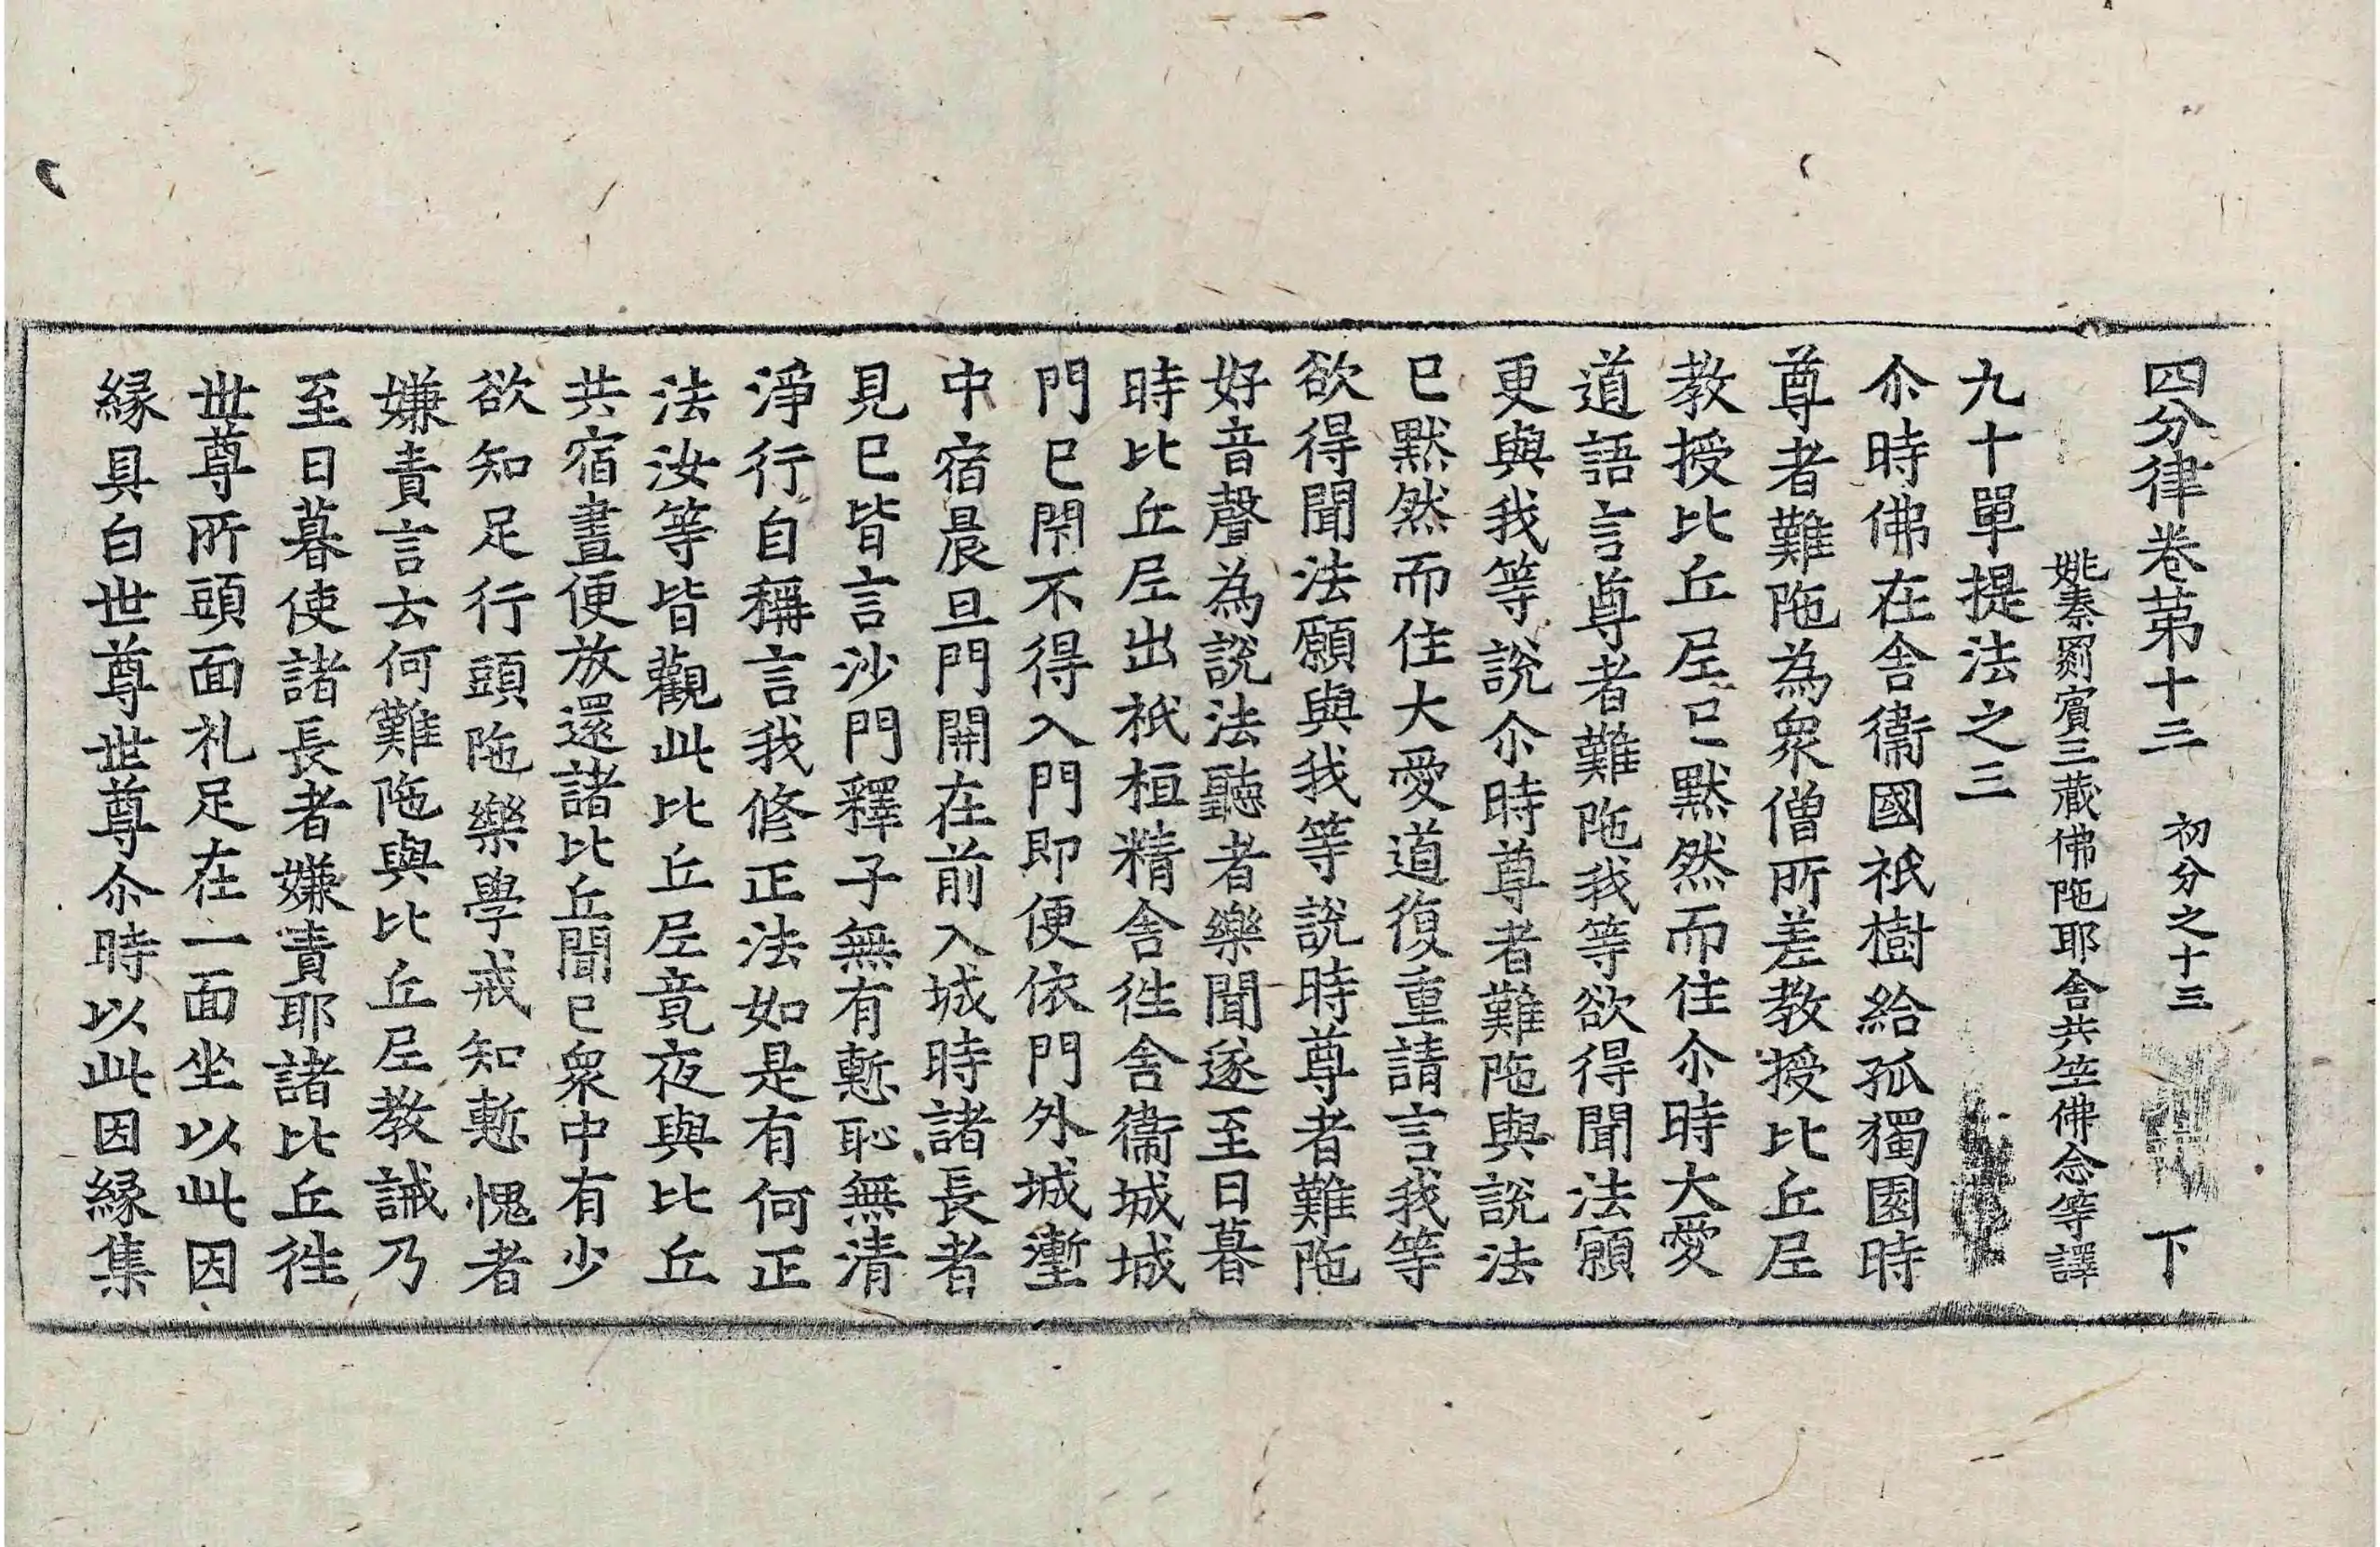 四分律卷第十三 初分之十三 下
姚秦罽賓三藏佛陁耶舍共竺佛念等譯
九十單提法之三
尒時佛在舍衞國祇樹給孤獨園時
尊者難陁為衆僧所差教授比丘尼
教授比丘尼已默然而住尒時大愛
道語言尊者難陁我等欲得聞法願
更與我等說尒時尊者難陁與說法
已默然而住大愛道復重請言我等
欲得聞法願與我等說時尊者難陁
好音聲為說法聽者樂聞遂至日暮
時比丘尼出祇桓精舍徃舍衞城城
門已閇不得入門即便依門外城壍
中宿晨旦門開在前入城時諸長者
見已皆言沙門釋子無有慙恥無清
淨行自稱言我修正法如是有何正
法汝等皆觀此比丘尼竟夜與比丘
共宿晝便放還諸比丘聞已衆中有少
欲知足行頭陁樂學戒知慙愧者
嫌責言云何難陁與比丘尼教誡乃
至日暮使諸長者嫌責耶諸比丘徃
世尊所頭面礼足在一面坐以此因
縁具白世尊世尊尒時以此因縁集